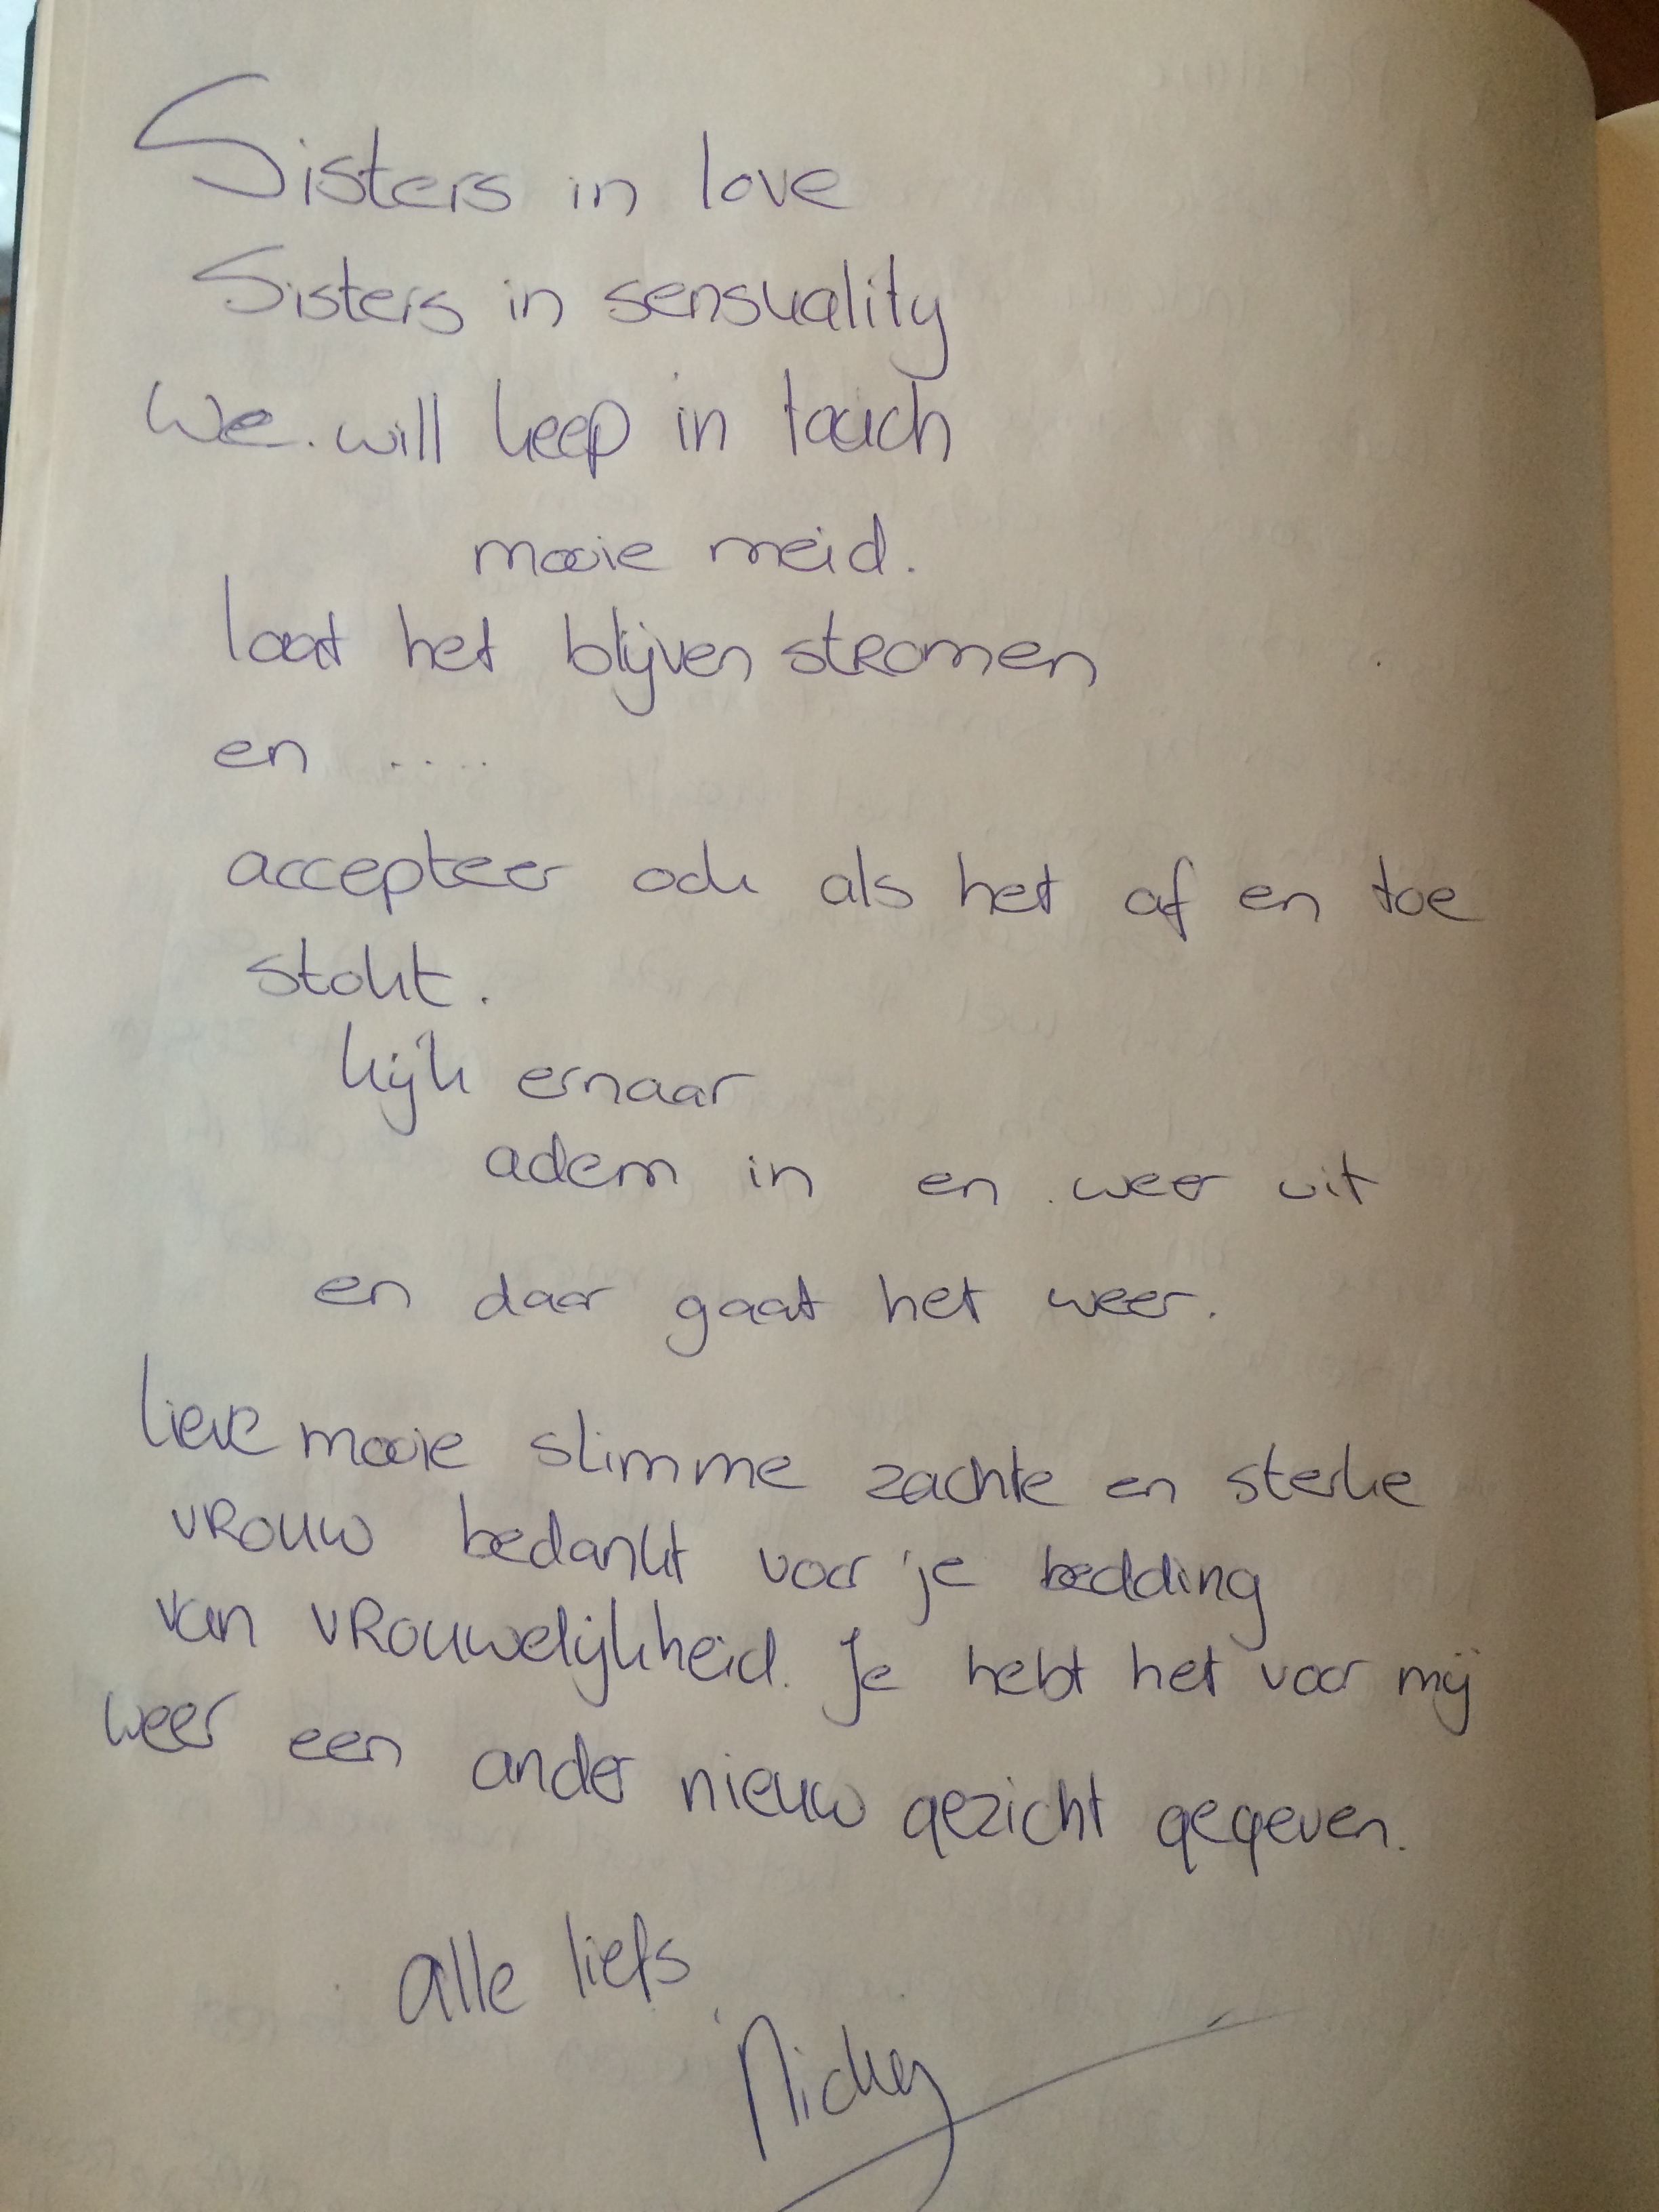 Sisters in love
Sisters in sensuality
We will keep in touch
mooie meid.
laat het blijven stromen
en ....
accepteer ook als het af en toe
stokt.
kijk ernaar
adem in en weer uit
en daar gaat het weer.
lieve mooie slimme zachte en sterke
vrouw bedankt voor je bedding
van vrouwelijkheid. Je hebt het voor mij
weer een ander nieuw gezicht gegeven.
alle liefs
Nicky